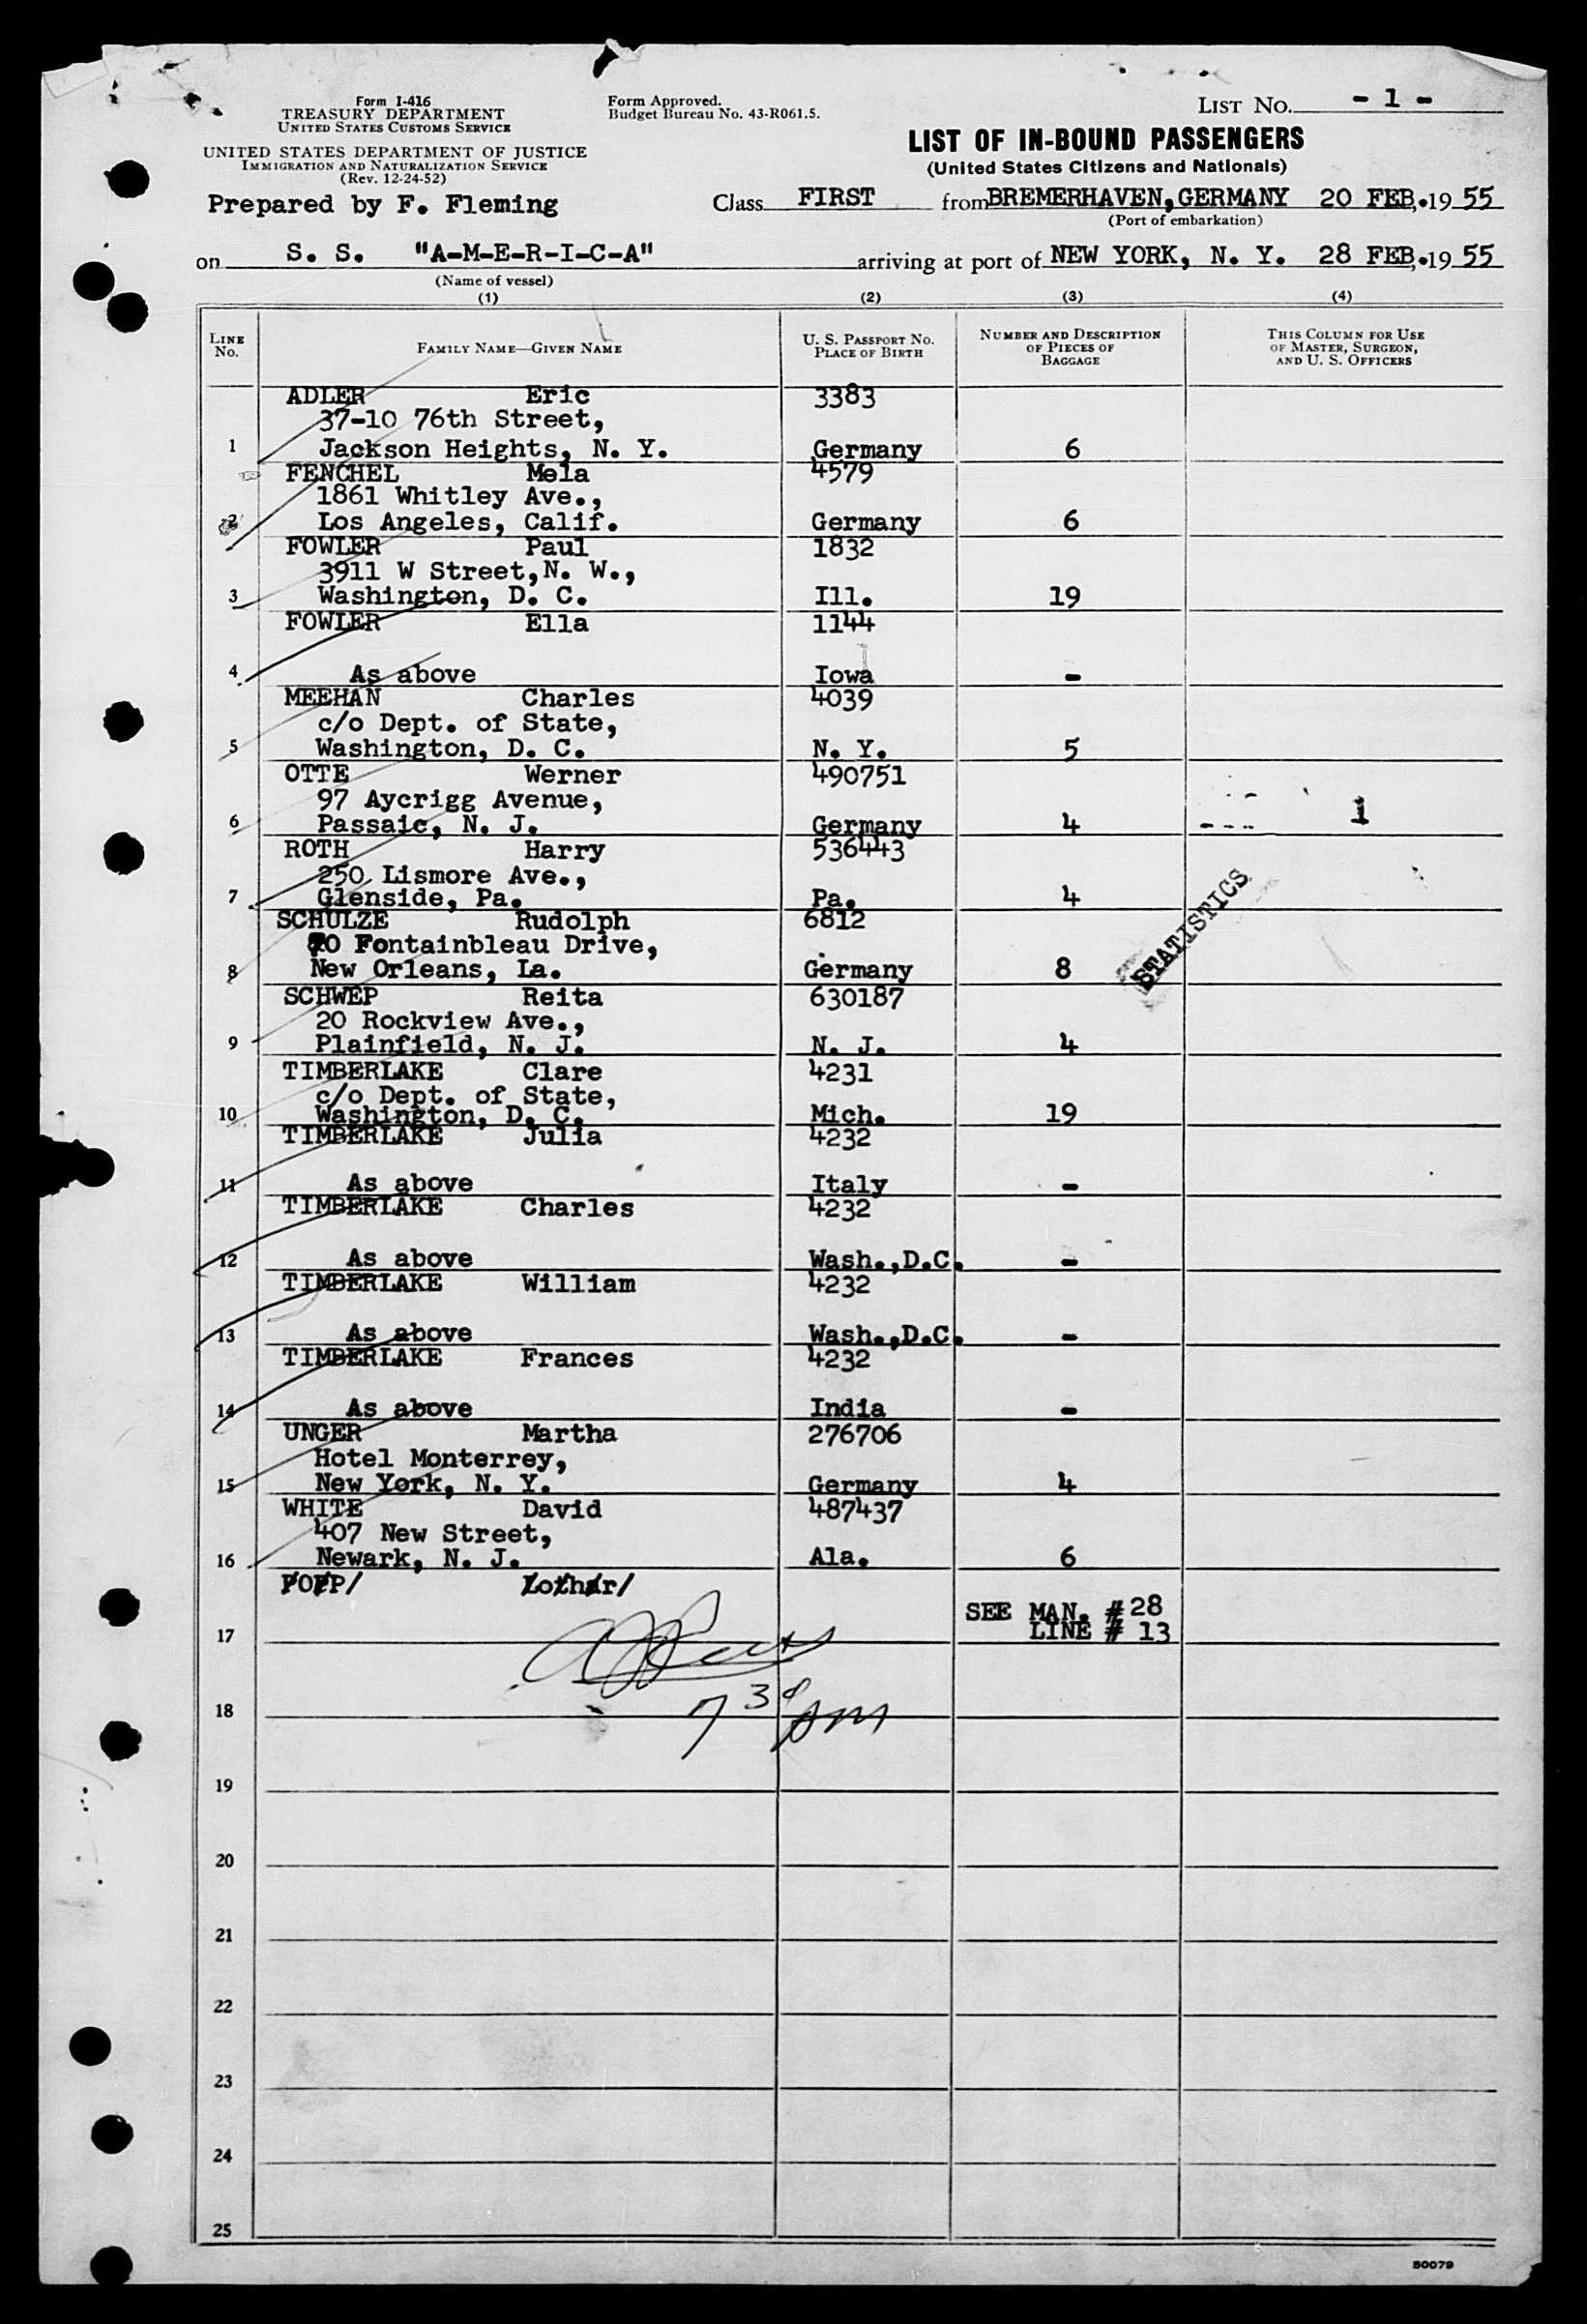 Form I-416
TREASURY DEPARTMENT
UNITED STATES CUSTOMS SERVICE
UNITED STATES DEPARTMENT OF JUSTICE
IMMIGRATION AND NATURALIZATION SERVICE
(Rev. 12-24-52)
Form Approved.
Budget Bureau No. 43-R061.5.
LIST NO. - 1 -
LIST OF IN-BOUND PASSENGERS
(United States Citizens and Nationals)
Prepared by F. Fleming
Class FIRST from BREMERHAVEN, GERMANY 20 FEB., 19 55
(Port of embarkation)
on S. S. "A-M-E-R-I-C-A" arriving at port of NEW YORK, N. Y. 28 FEB., 19 55
(Name of vessel)
(1) (2) (3) (4)
LINE NO. FAMILY NAME—GIVEN NAME U. S. PASSPORT NO. PLACE OF BIRTH NUMBER AND DESCRIPTION OF PIECES OF BAGGAGE THIS COLUMN FOR USE OF MASTER, SURGEON, AND U. S. OFFICERS
ADLER Eric 3383
37-10 76th Street,
1 Jackson Heights, N. Y. Germany 6
FENCHEL Mela 4579
1861 Whitley Ave.,
2 Los Angeles, Calif. Germany 6
FOWLER Paul 1832
3911 W Street, N. W.,
3 Washington, D. C. Ill. 19
FOWLER Ella 1144
4 As above Iowa -
MEEHAN Charles 4039
c/o Dept. of State,
5 Washington, D. C. N. Y. 5
OTTE Werner 490751
97 Aycrigg Avenue,
6 Passaic, N. J. Germany 4 1
ROTH Harry 536443
250 Lismore Ave.,
7 Glenside, Pa. Pa. 4
STATISTICS
SCHULZE Rudolph 6812
20 Fontainbleau Drive,
8 New Orleans, La. Germany 8
SCHWEP Reita 630187
20 Rockview Ave.,
9 Plainfield, N. J. N. J. 4
TIMBERLAKE Clare 4231
c/o Dept. of State,
10 Washington, D. C. Mich. 19
TIMBERLAKE Julia 4232
11 As above Italy -
TIMBERLAKE Charles 4232
12 As above Wash., D.C. -
TIMBERLAKE William 4232
13 As above Wash., D.C. -
TIMBERLAKE Frances 4232
14 As above India -
UNGER Martha 276706
Hotel Monterrey,
15 New York, N. Y. Germany 4
WHITE David 487437
407 New Street,
16 Newark, N. J. Ala. 6
POPP/ Lothar/
SEE MAN. # 28
17 LINE # 13
18 7 30 pm
19
20
21
22
23
24
25
50079